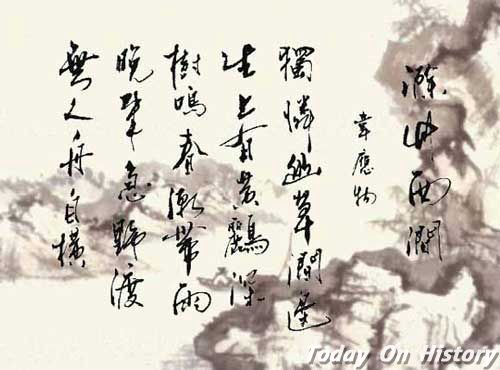 滁州西澗
韋應物
獨憐幽草澗邊
生上有黄鸝深
樹鳴春潮帶雨
晚來急野渡
無人舟自橫
Today On History